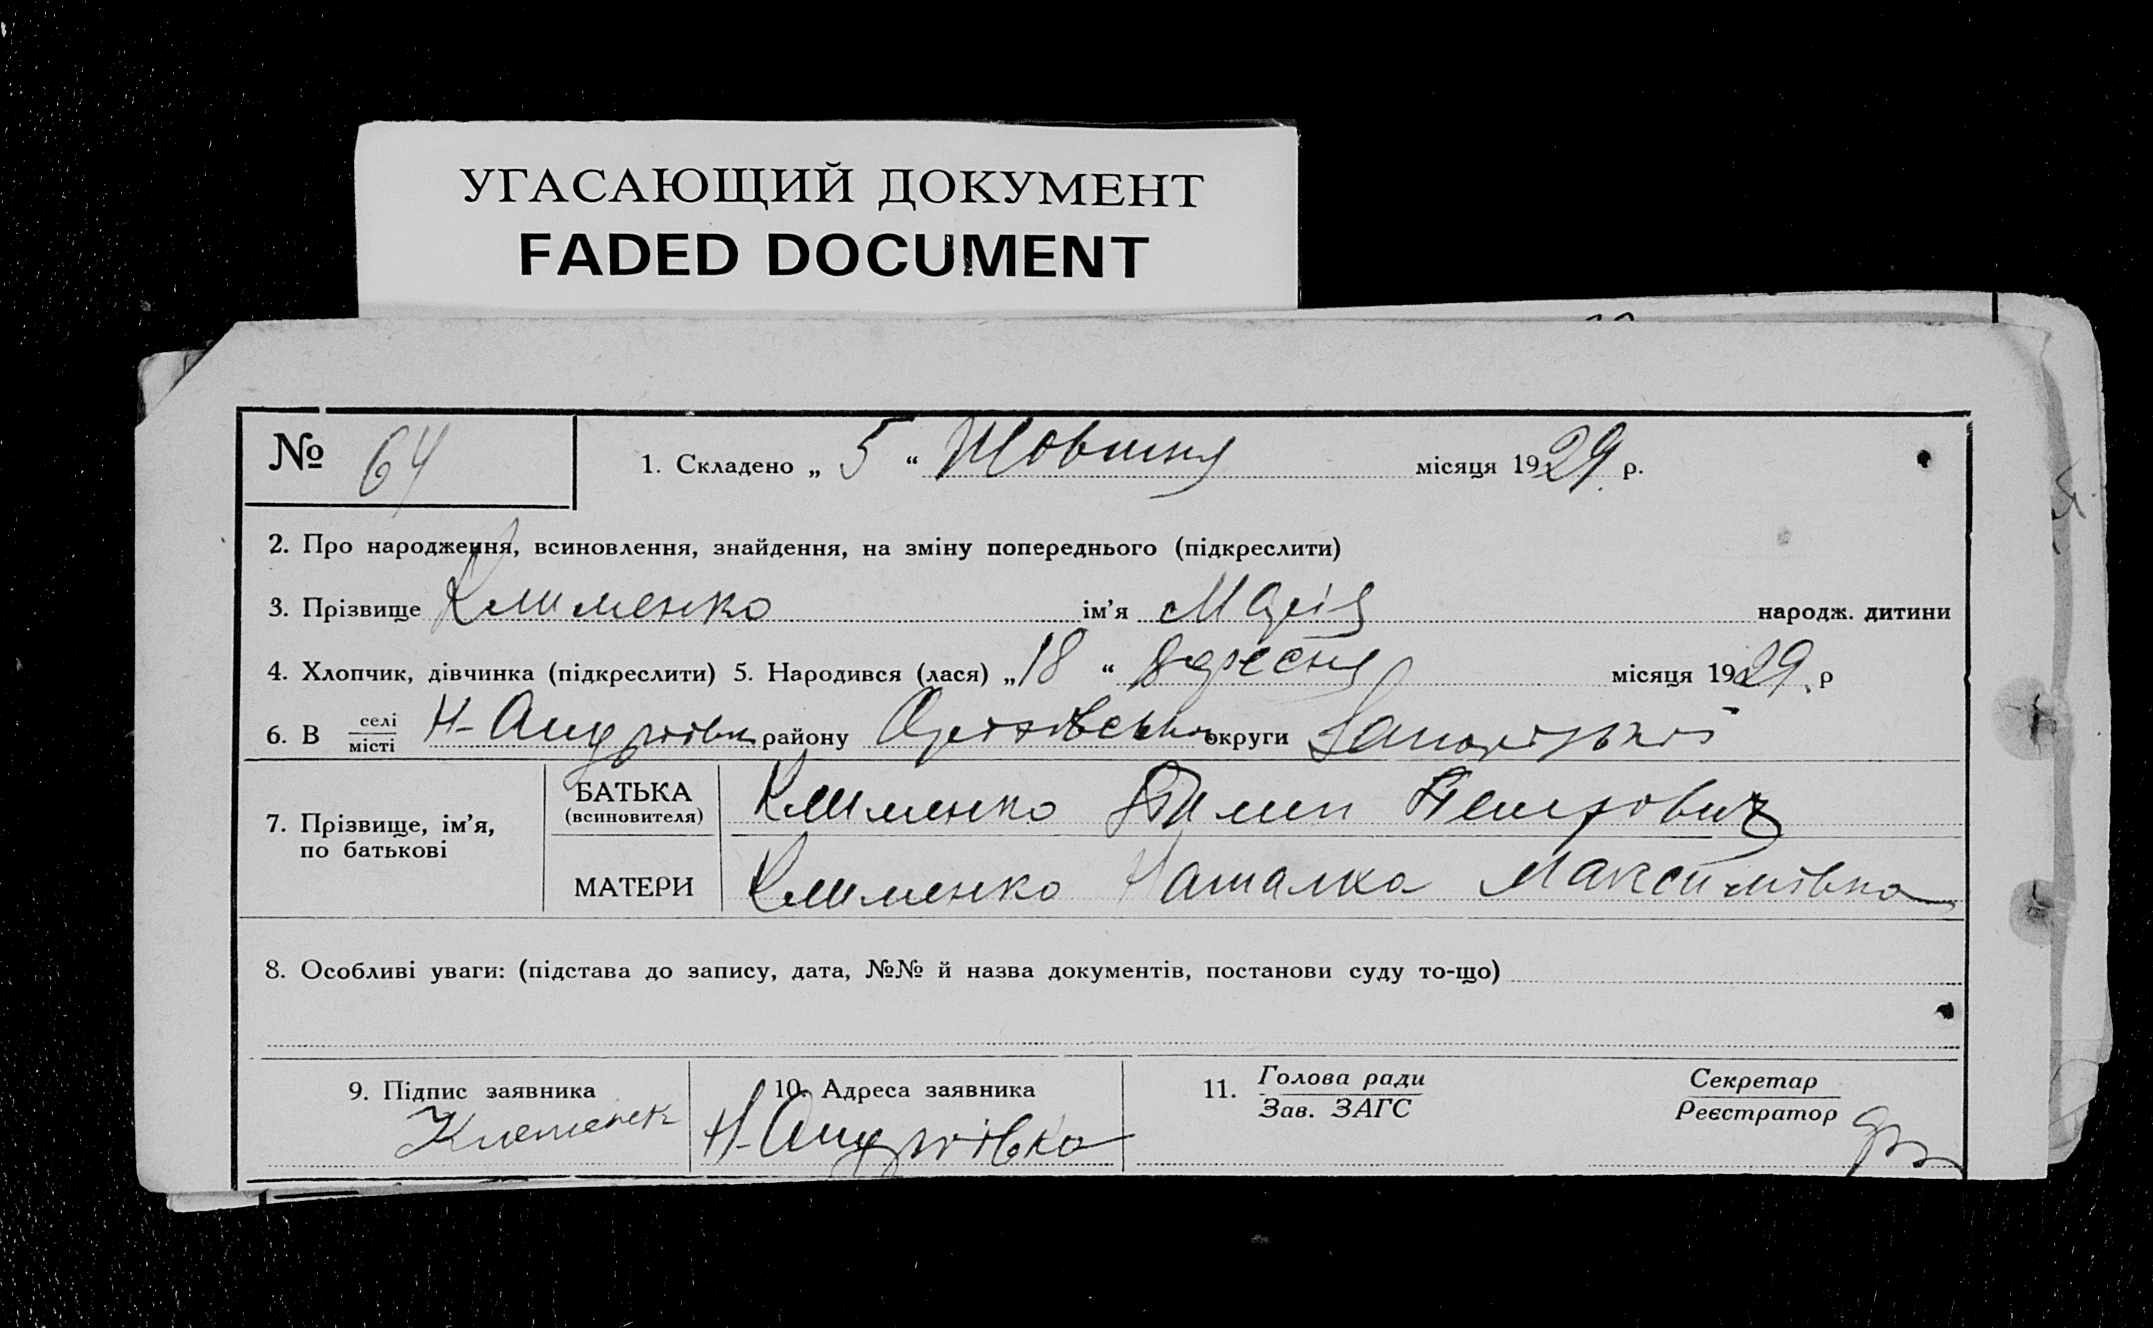 УГАСАЮЩИЙ ДОКУМЕНТ
FADED DOCUMENT
№ 64
1. Складено „ 5 “ Жовтня місяця 1929 р.
2. Про народження, всиновлення, знайдення, на зміну попереднього (підкреслити)
3. Прізвище Клименко ім’я Марія народж. дитини
4. Хлопчик, дівчинка (підкреслити) 5. Народився (лася) „ 18 “ Вересня місяця 1929 р
6. В селі/місті Н-Андріівка району Оріхівськ округи Запорізькоі
7. Прізвище, ім’я, по батькові
БАТЬКА (всиновителя) Клименко Петрович
МАТЕРИ Клименко Наталка Максимівна
8. Особливі уваги: (підстава до запису, дата, №№ й назва документів, постанови суду то-що)
9. Підпис заявника
10. Адреса заявника
11. Голова ради
Зав. ЗАГС
Секретар
Реєстратор
Н-Андріівка